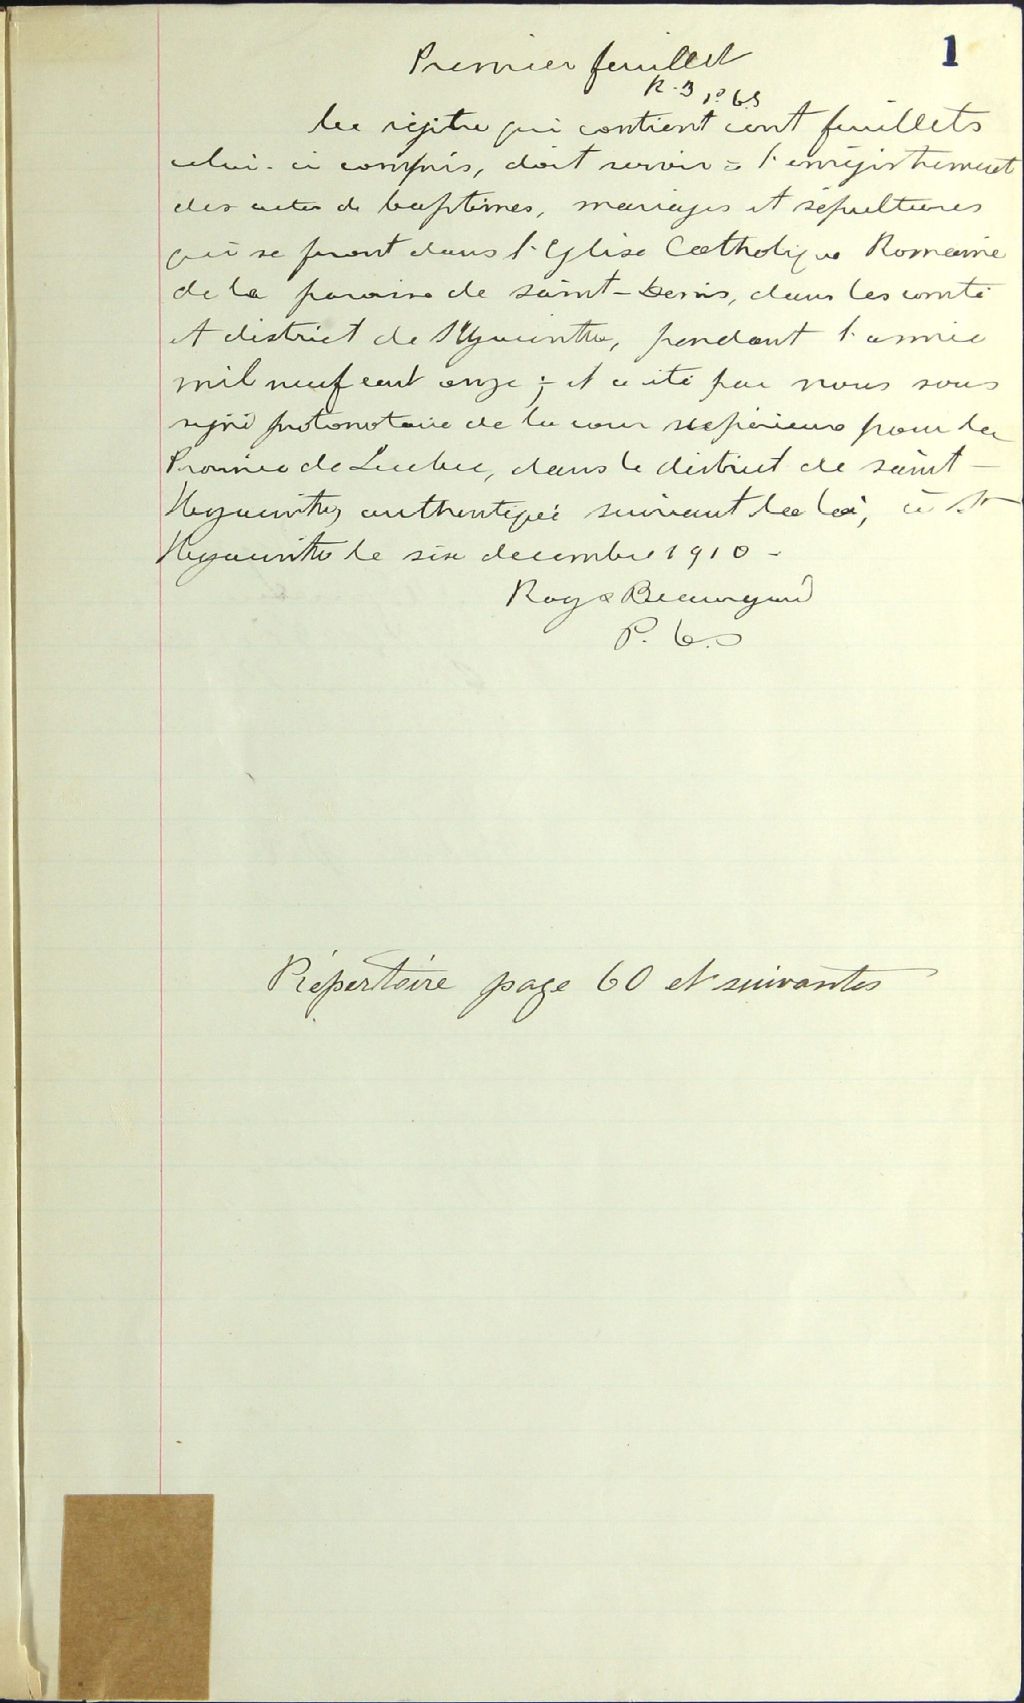 1
Premier feuillet
R. B P. C. S
Ce régitre qui contient cent feuillets
celui-ci compris, doit servir à l'enrégistrement
des actes de baptêmes, mariages et sépultures
qui se feront dans l'Eglise Catholique Romaine
de la paroisse de Saint-Denis, dans les comté
et district de St Hyacinthe, pendant l'année
mil neuf cent onze ; et a été par nous sous
signé protonotaire de la cour supérieure pour la
Province de Quebec, dans le district de saint-
Hyacinthe, authentiqué suivant la loi, à St
Hyacinthe le six decembre 1910 -
Roy & Beauregard
P. C. S
Répertoire page 60 et suivantes